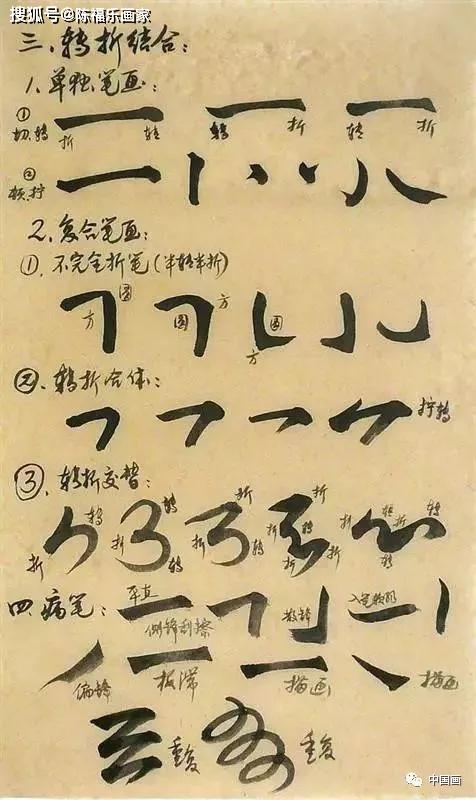 搜狐号@陈福乐画家
三、转折结合:
1.单独笔画:
①切.转 折 转 转 折 转 折
②顿.拧
2.复合笔画:
①.不完全折笔(半转半折)
方 圆 圆 方 圆 方
②.转折合体:
拧转
③.转折交替:
折 转 折 转 转 折 折 转 折 折 转 折 折 折 转 折 转 转
四.病笔: 平直 侧锋刮擦 散锋
偏锋 板滞 描画 描画
重复 重复
中国画